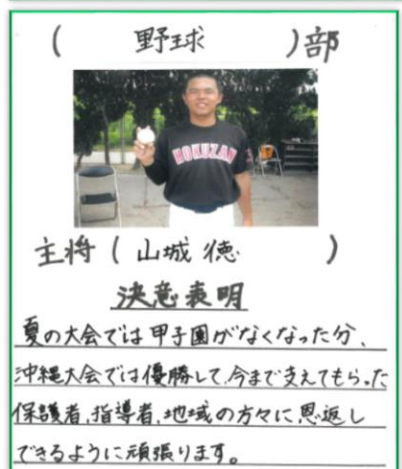 ( 野球 )部
HOKUZAN
主将 ( 山城 徳 )
決意表明
夏の大会では甲子園がなくなった分、
沖縄大会では優勝して、今まで支えてもらった
保護者、指導者、地域の方々に恩返し
できるように頑張ります。